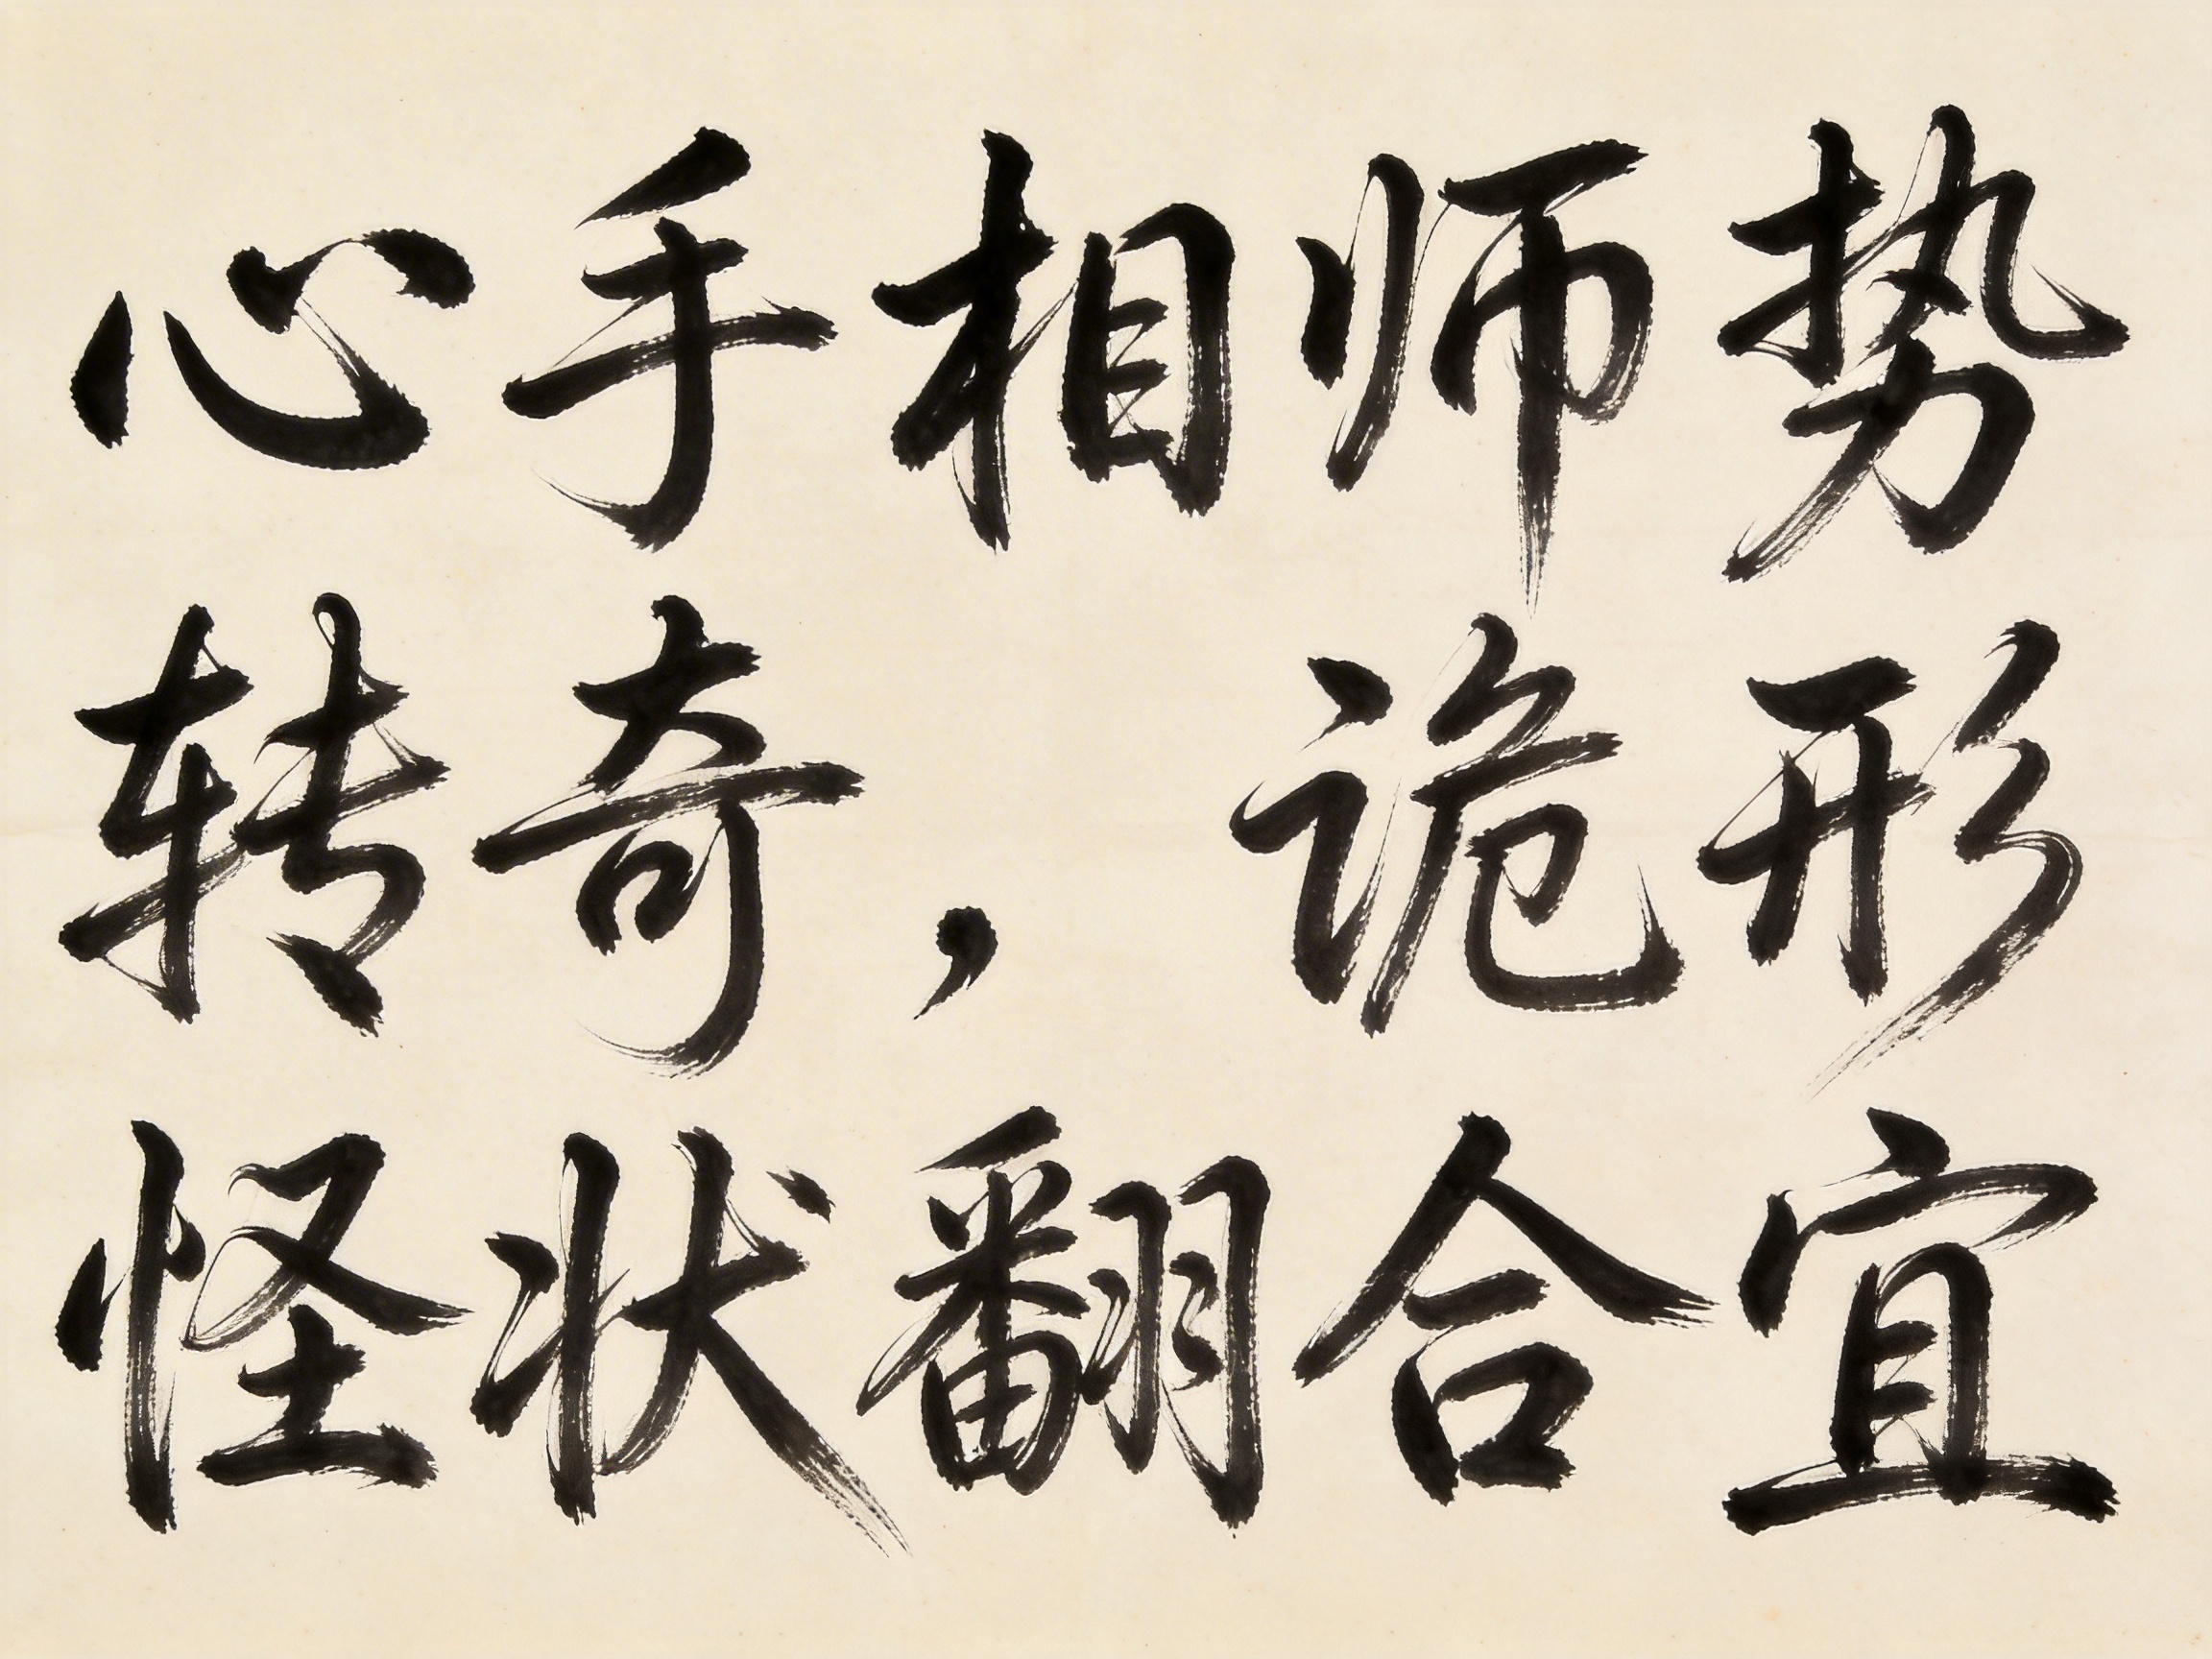 心手相师势
转奇，诡形
怪状翻合宜